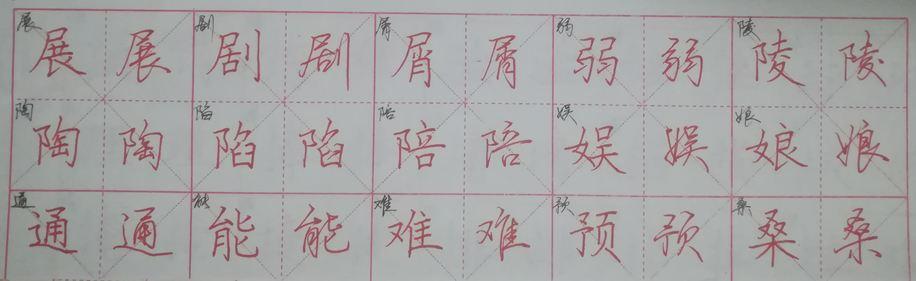 展 展 展 剧 剧 剧 屑 屑 屑 弱 弱 弱 陵 陵 陵
陶 陶 陶 陷 陷 陷 陪 陪 陪 娱 娱 娱 娘 娘 娘
通 通 通 能 能 能 难 难 难 预 预 预 桑 桑 桑